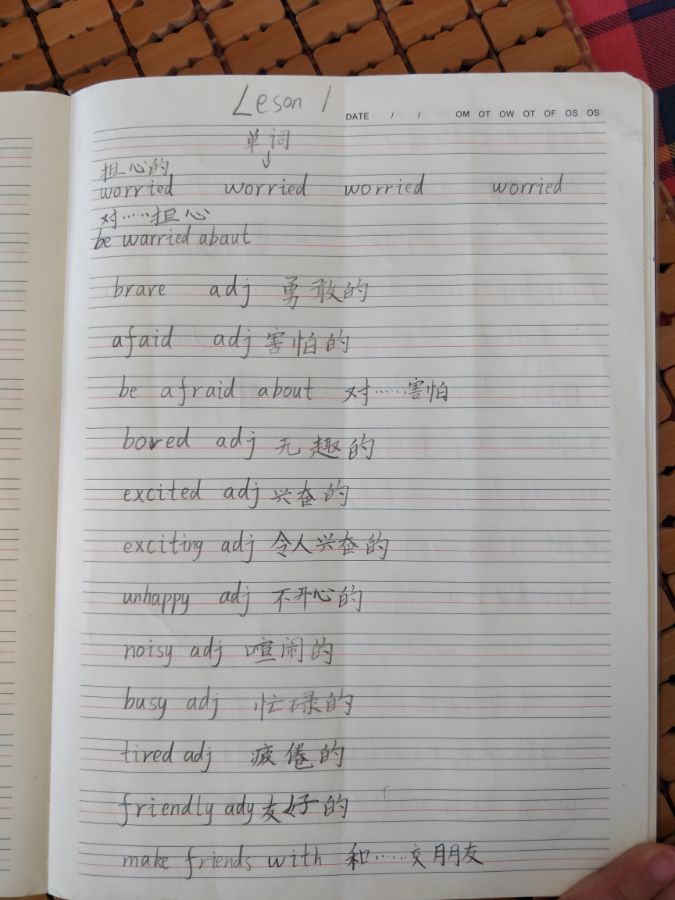 Leson 1
DATE / / OM OT OW OT OF OS OS
单词
↓
担心的
worried worried worried worried
对……担心
be warried abaut
brare adj 勇敢的
afaid adj 害怕的
be afraid about 对……害怕
bored adj 无趣的
excited adj 兴奋的
exciting adj 令人兴奋的
unhappy adj 不开心的
noisy adj 喧闹的
busy adj 忙碌的
tired adj 疲倦的
friendly ady 友好的
make friends with 和……交朋友